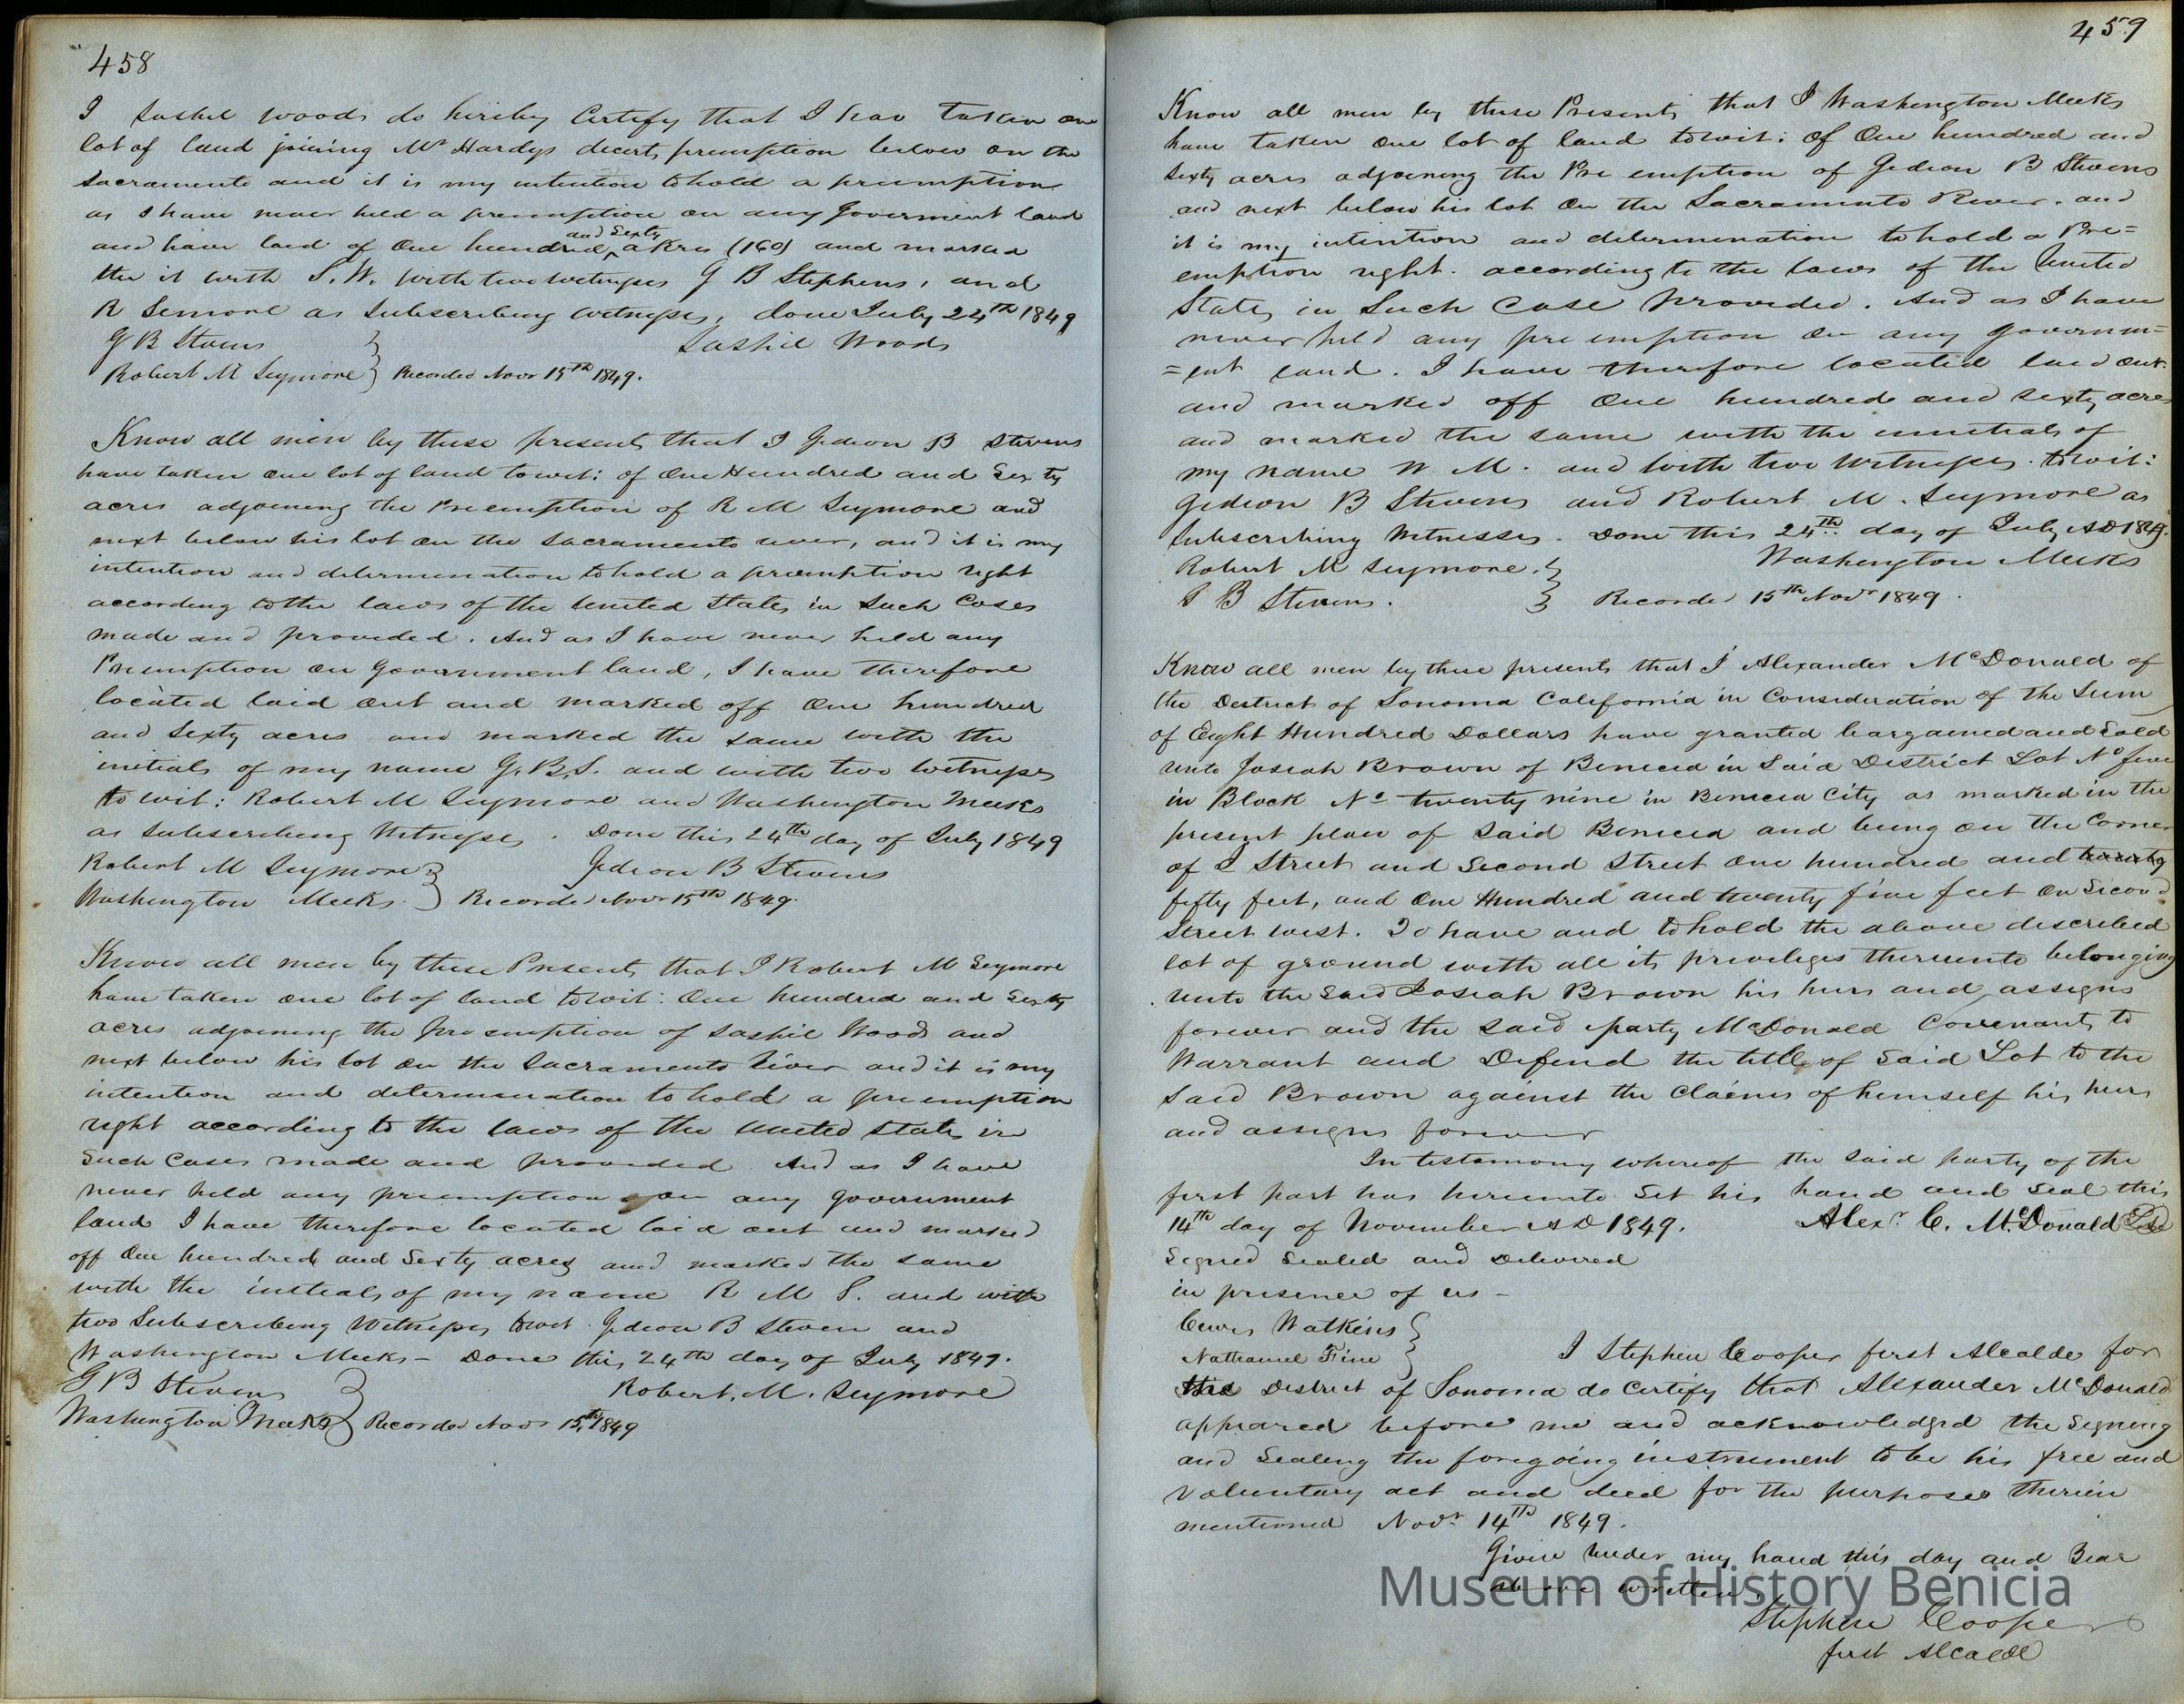 458
I Sashel Woods do hereby Certify that I hav taken one
lot of land joining Mr Hardys decerts premption below on the
Sacramento and it is my intention to hold a preemption
as I have never held a premption on any Goverment land
and have laid of One hundred and Sixty akres (160) and marked
the it with S. W. with two Witnesses G B Stephens, and
R Semore as Subscribing witnesses, done July 24th 1849
G B Stevens Sashel Woods
Robert M Seymore Recorded Novr 15th 1849.
Know all men by these presents that I Gedeon B Stevens
have taken one lot of land towit: of One Hundred and Sixty
acres adjoining the Preemption of R M Seymore and
next below his lot on the Sacramento river, and it is my
intention and determination to hold a preemption right
according to the laws of the United States in Such Cases
made and provided. And as I have never held any
Preemption on Government land, I have therefore
located laid out and marked off One hundred
and Sixty acres and marked the same with the
initials of my name G. B. S. and with two Witnesses
to wit: Robert M Seymore and Washington Meeks
as Subscribing Witnesses. Done this 24th day of July 1849
Robert M Seymore Gedeon B Stevens
Washington Meeks. Recorded Novr 15th 1849.
Know all men by these Presents that I Robert M Seymore
have taken one lot of land towit: One hundred and Sixty
acres adjoining the preemption of Sashel Woods and
next below his lot on the Sacramento River and it is my
intention and determination to hold a preemption
right according to the laws of the United States in
Such Cases made and provided And as I have
never held any preemption on any government
land I have therefore located laid out and marked
off One hundred and Sixty acres and marked the same
with the initials of my name R M S. and with
two Subscribing Witnesses towit Gedeon B Steven and
Washington Meeks - Done this 24th day of July 1849.
G B Stevens Robert. M. Seymore
Washington Meeks Recorded Novr 15th 1849
459
Know all men by these Presents that I Washington Meeks
have taken One lot of land towit: of One hundred and
Sixty acres adjoining the Pre emption of Gedeon B Stevens
and next below his lot on the Sacramento River. and
it is my intention and determination to hold a Pre=
emption right. according to the laws of the United
States in Such Case Provided. And as I have
never held any pre emption on any governm=
=ent land. I have therefore located laid out
and marked off One hundred and sixty acres
and marked the same with the innitials of
my name W M. and with two Witnesses. towit:
Gedeon B Stevens and Robert M. Seymore as
Subscribing Witnesses. Done this 24th day of July AD 1849.
Robert M Seymore. Washington Meeks
G B Stevens. Recorded 15th Novr 1849.
Know all men by these presents that I Alexander McDonald of
the District of Sonoma California in Consideration of the Sum
of Eight Hundred Dollars have granted bargained and Sold
unto Josiah Brown of Benicia in Said District Lot No five
in Block No twenty nine in Benicia City as marked in the
present plan of Said Benicia and being on the Corner
of I Street and Second Street One hundred and twenty
fifty feet, and One Hundred and twenty five feet on Second
Street West. To have and to hold the above described
lot of ground with all its privileges thereunto belonging
unto the Said Josiah Brown his heirs and assigns
forever and the said party McDonald Covenants to
Warrant and Defend the title of Said Lot to the
Said Brown against the Claims of himself his heirs
and assigns forever
In testamony whereof the said party of the
first part has hereunto Set his hand and Seal this
14th day of November AD 1849. Alexr C. McDonald
Signed Sealed and Delivered
in presence of us -
Watkins
Nathaniel Fine I Stephen Cooper first Alcalde for
the District of Sonoma do Certify that Alexander McDonald
appeared before me and acknowledged the Signing
and Sealing the foregoing instrument to be his free and
voluntary act and deed for the purposes therein
mentioned Novr 14th 1849.
Given under my hand this day and Year
above written.
Stephen Cooper
first Alcalde
Museum of History Benicia